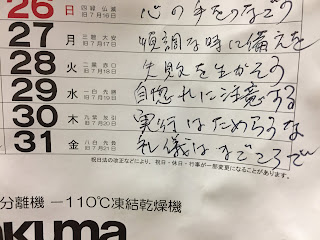 26 日 四緑 仏滅 旧7月16日 心の手をつなごう
27 月 三碧 大安 旧7月17日 順調な時に備えを
28 火 二黒 赤口 旧7月18日 失敗を生かそう
29 水 一白 先勝 旧7月19日 自惚れに注意する
30 木 九紫 友引 旧7月20日 実行はためらうな
31 金 八白 先負 旧7月21日 礼儀はまごころで
祝日法の改正などにより、祝日・休日・行事が一部変更になることがあります。
分離機 −110℃凍結乾燥機
kuma